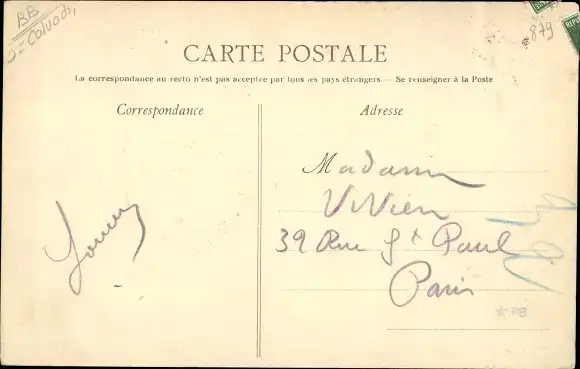 BB
Calvados
879
CARTE POSTALE
La correspondance au recto n'est pas acceptée par tous les pays étrangers — Se renseigner à la Poste
Correspondance
Adresse
Madame
ViVien
39 Rue St Paul
Paris
PB